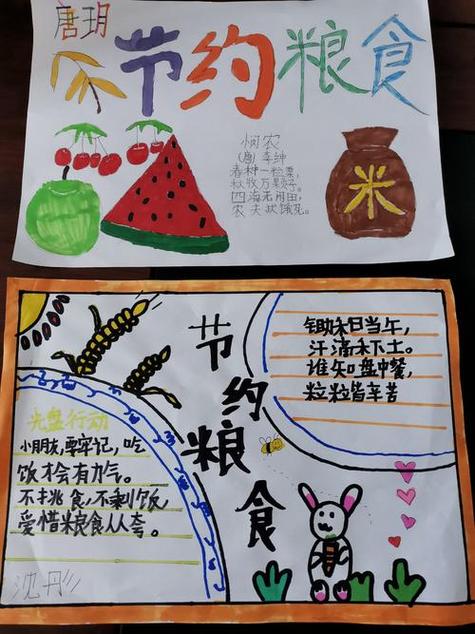 唐玥
节约粮食
悯农
(唐) 李绅
春种一粒粟,
秋收万颗子。
四海无闲田,
农夫犹饿死。
米
节约粮食
锄禾日当午,
汗滴禾下土。
谁知盘中餐,
粒粒皆辛苦
光盘行动
小朋友,要牢记,吃
饭才会有力气。
不挑食,不剩饭,
爱惜粮食人人夸。
沈丹